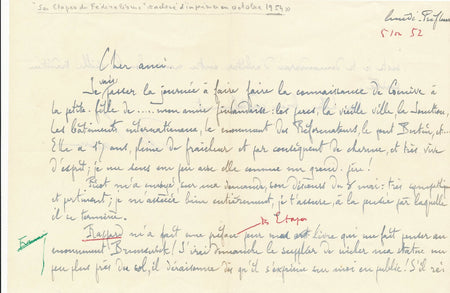 "Les Etapes du Fédéralisme" achevé d'imprimer en octobre 1954
5 Nov 52
Cher ami.
Je vais passer la journée à faire faire la connaissance de Genève à
la petite-fille de ..... mon amie finlandaise: les parcs, la vieille ville, la Jonction,
les bâtiments internationaux, le monument des Réformateurs, le pont Butin, et...
Elle a 17 ans, pleine de fraîcheur et par conséquent de charme, et très vive
d'esprit; je me sens un peu avec elle comme un grand-père!
Picot m'a envoyé, sur ma demande, son discours du 8 mai: très sympathique
et pertinent; je m'associe bien entièrement, je t'assure, à la pensée par laquelle
il se termine.
les Etapes
Rappard m'a fait une préface pour mon livre qui me fait penser au
monument Brunswick! J'irai dimanche le supplier de nicher ma statue un
peu plus près du sol; il déraisonne dès qu'il s'exprime sur moi en public! S'il